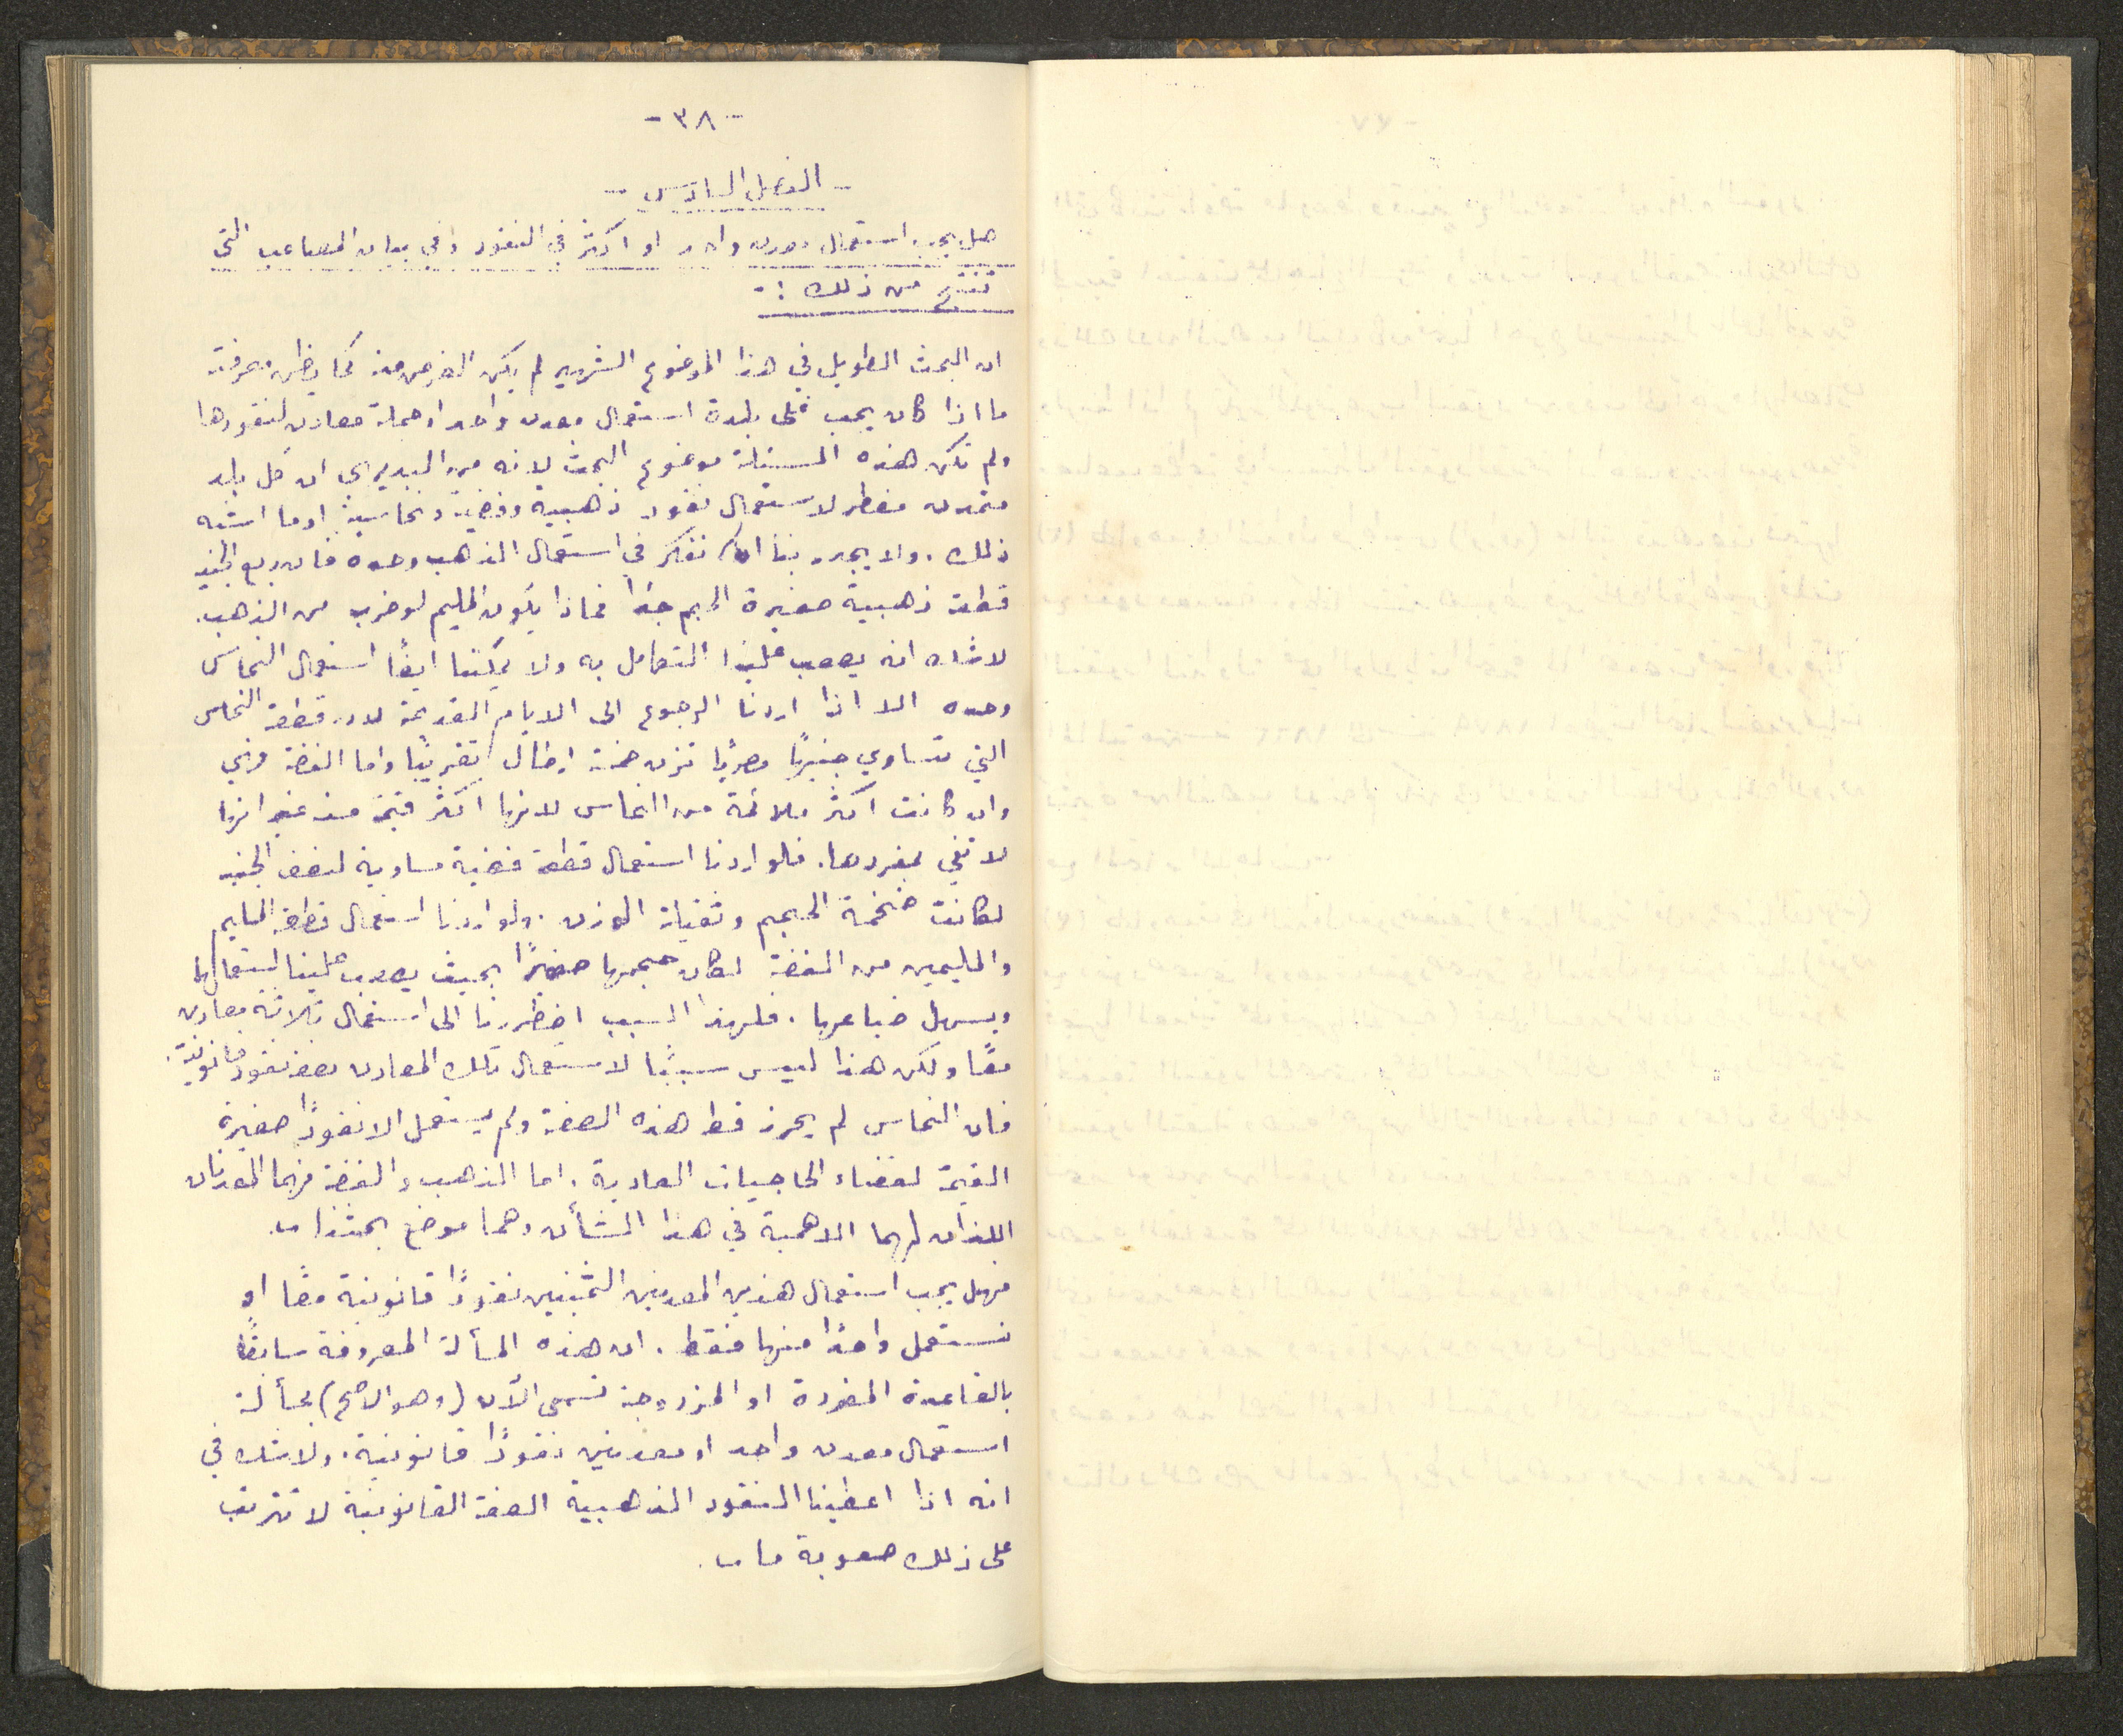 -٣٨-
- الفصل السادس -
هل يجب استعمال معدن واحد او اكثر في النقود وفي بيان المصاعب التي
تنتج من ذلك :-
ان البحث الطويل في هذا الموضوع الشهير لم يكن الغرض منه كما يظن معرفة
ما اذا كان يجب على بلدة استعمال معدن واحد او جملة معادن لنقودها
ولم تكن هذه المسئلة موضوع البحث لانه من البديهي ان كل بلد
متمدن مضطر لاستعمال نقود ذهبية وفضية ونحاسية او ما اشبه
ذلك . ولا يجدر بنا ان نفكر في استعمال الذهب وحده فان ربع الجنيه
قطعة ذهبية صغيرة الحجم جدا فماذا يكون المليم لو ضرب من الذهب .
لا شك انه يصعب علينا التعامل به ولا يمكننا ايضًا استعمال النحاس
وحده الا اذا اردنا الرجوع الى الايام القديمة لان قطعة النحاس
التي تساوي جنيهًا مصريًا تزن خمسة ارطال تقريبًا واما الفضة فهي
وان كانت اكثر ملائمة من النحاس لانها اكثر قيمة منه غير انها
لا تفي بمفردها . فلو اردنا استعمال قطعة فضية مساوية لنصف الجنيه
لكانت ضخمة الحجم وثقيلة الوزن . ولو اردنا استعمال قطعة المليم
والمليمين من الفضة لكان حجمها صغيرًا بحيث يصعب علينا استعمالها
ويسهل ضياعها . فلهذا السبب اضطررنا الى استعمال ثلاثة معادن
معًا ولكن هذا ليس سببًا لاستعمال تلك المعادن بصفة نقود قانونية .
فان النحاس لم يحرز قط هذه الصفة ولم يستعمل الا نقودًا صغيرة
القيمة لقضاء الحاجيات العادية . اما الذهب والفضة فهما المعدنان
اللذان لهما الاهمية في هذا الشأن وهما موضع بحثنا .
فهل يجب استعمال هذين المعدنين الثمينين نقودًا قانونية معًا او
نستعمل واحدًا منها فقط . ان هذه المسألة المعروفة سابقًا
بالقاعدة المفردة او المزدوجة تسمى الآن (وهو الاصح) بمسألة
استعمال معدن واحد او معدنين نقودًا قانونية . ولا شك في
انه اذا اعطينا النقود الذهبية الصفة القانونية لا تترتب
على ذلك صعوبة ما .